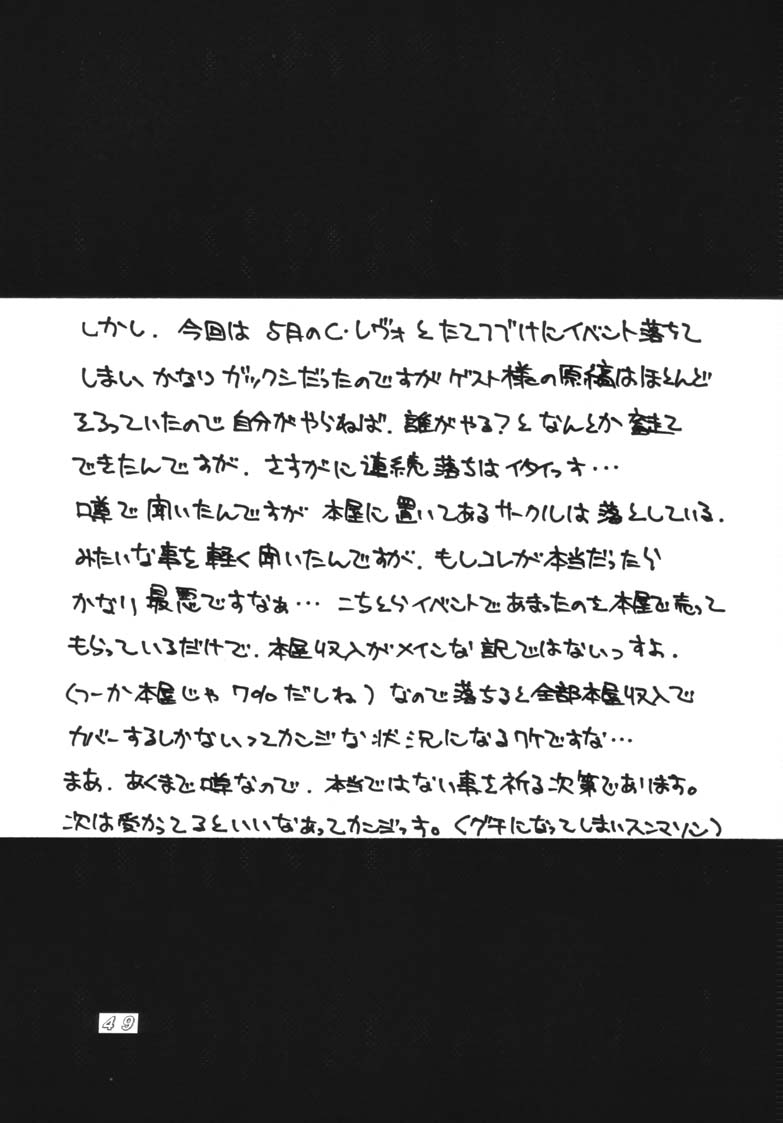 しかし. 今回は 5月のC・レヴォとたてつづけにイベント落ちて
しまい、かなりガックシだったのですがゲスト様の原稿はほとんど
そろっていたので自分がやらねば. 誰がやる?となんとか奮起して
できたんですが. さすがに連続落ちはイタイっす…
噂で聞いたんですが本屋に置いてあるサークルは落としている.
みたいな事を軽く聞いたんですが. もしコレが本当だったら
かなり最悪ですなぁ… こちとらイベントであまったのを本屋で売って
もらっているだけで. 本屋収入がメインな訳ではないっすよ.
(つーか本屋じゃ7%だしね)なので落ちると全部本屋収入で
カバーするしかないってカンジな状況になるワケですな…
まあ. あくまで噂なので. 本当ではない事を祈る次第であります。
次は受かってるといいなあってカンジっす。(グチになってしまいスンマソン)
49